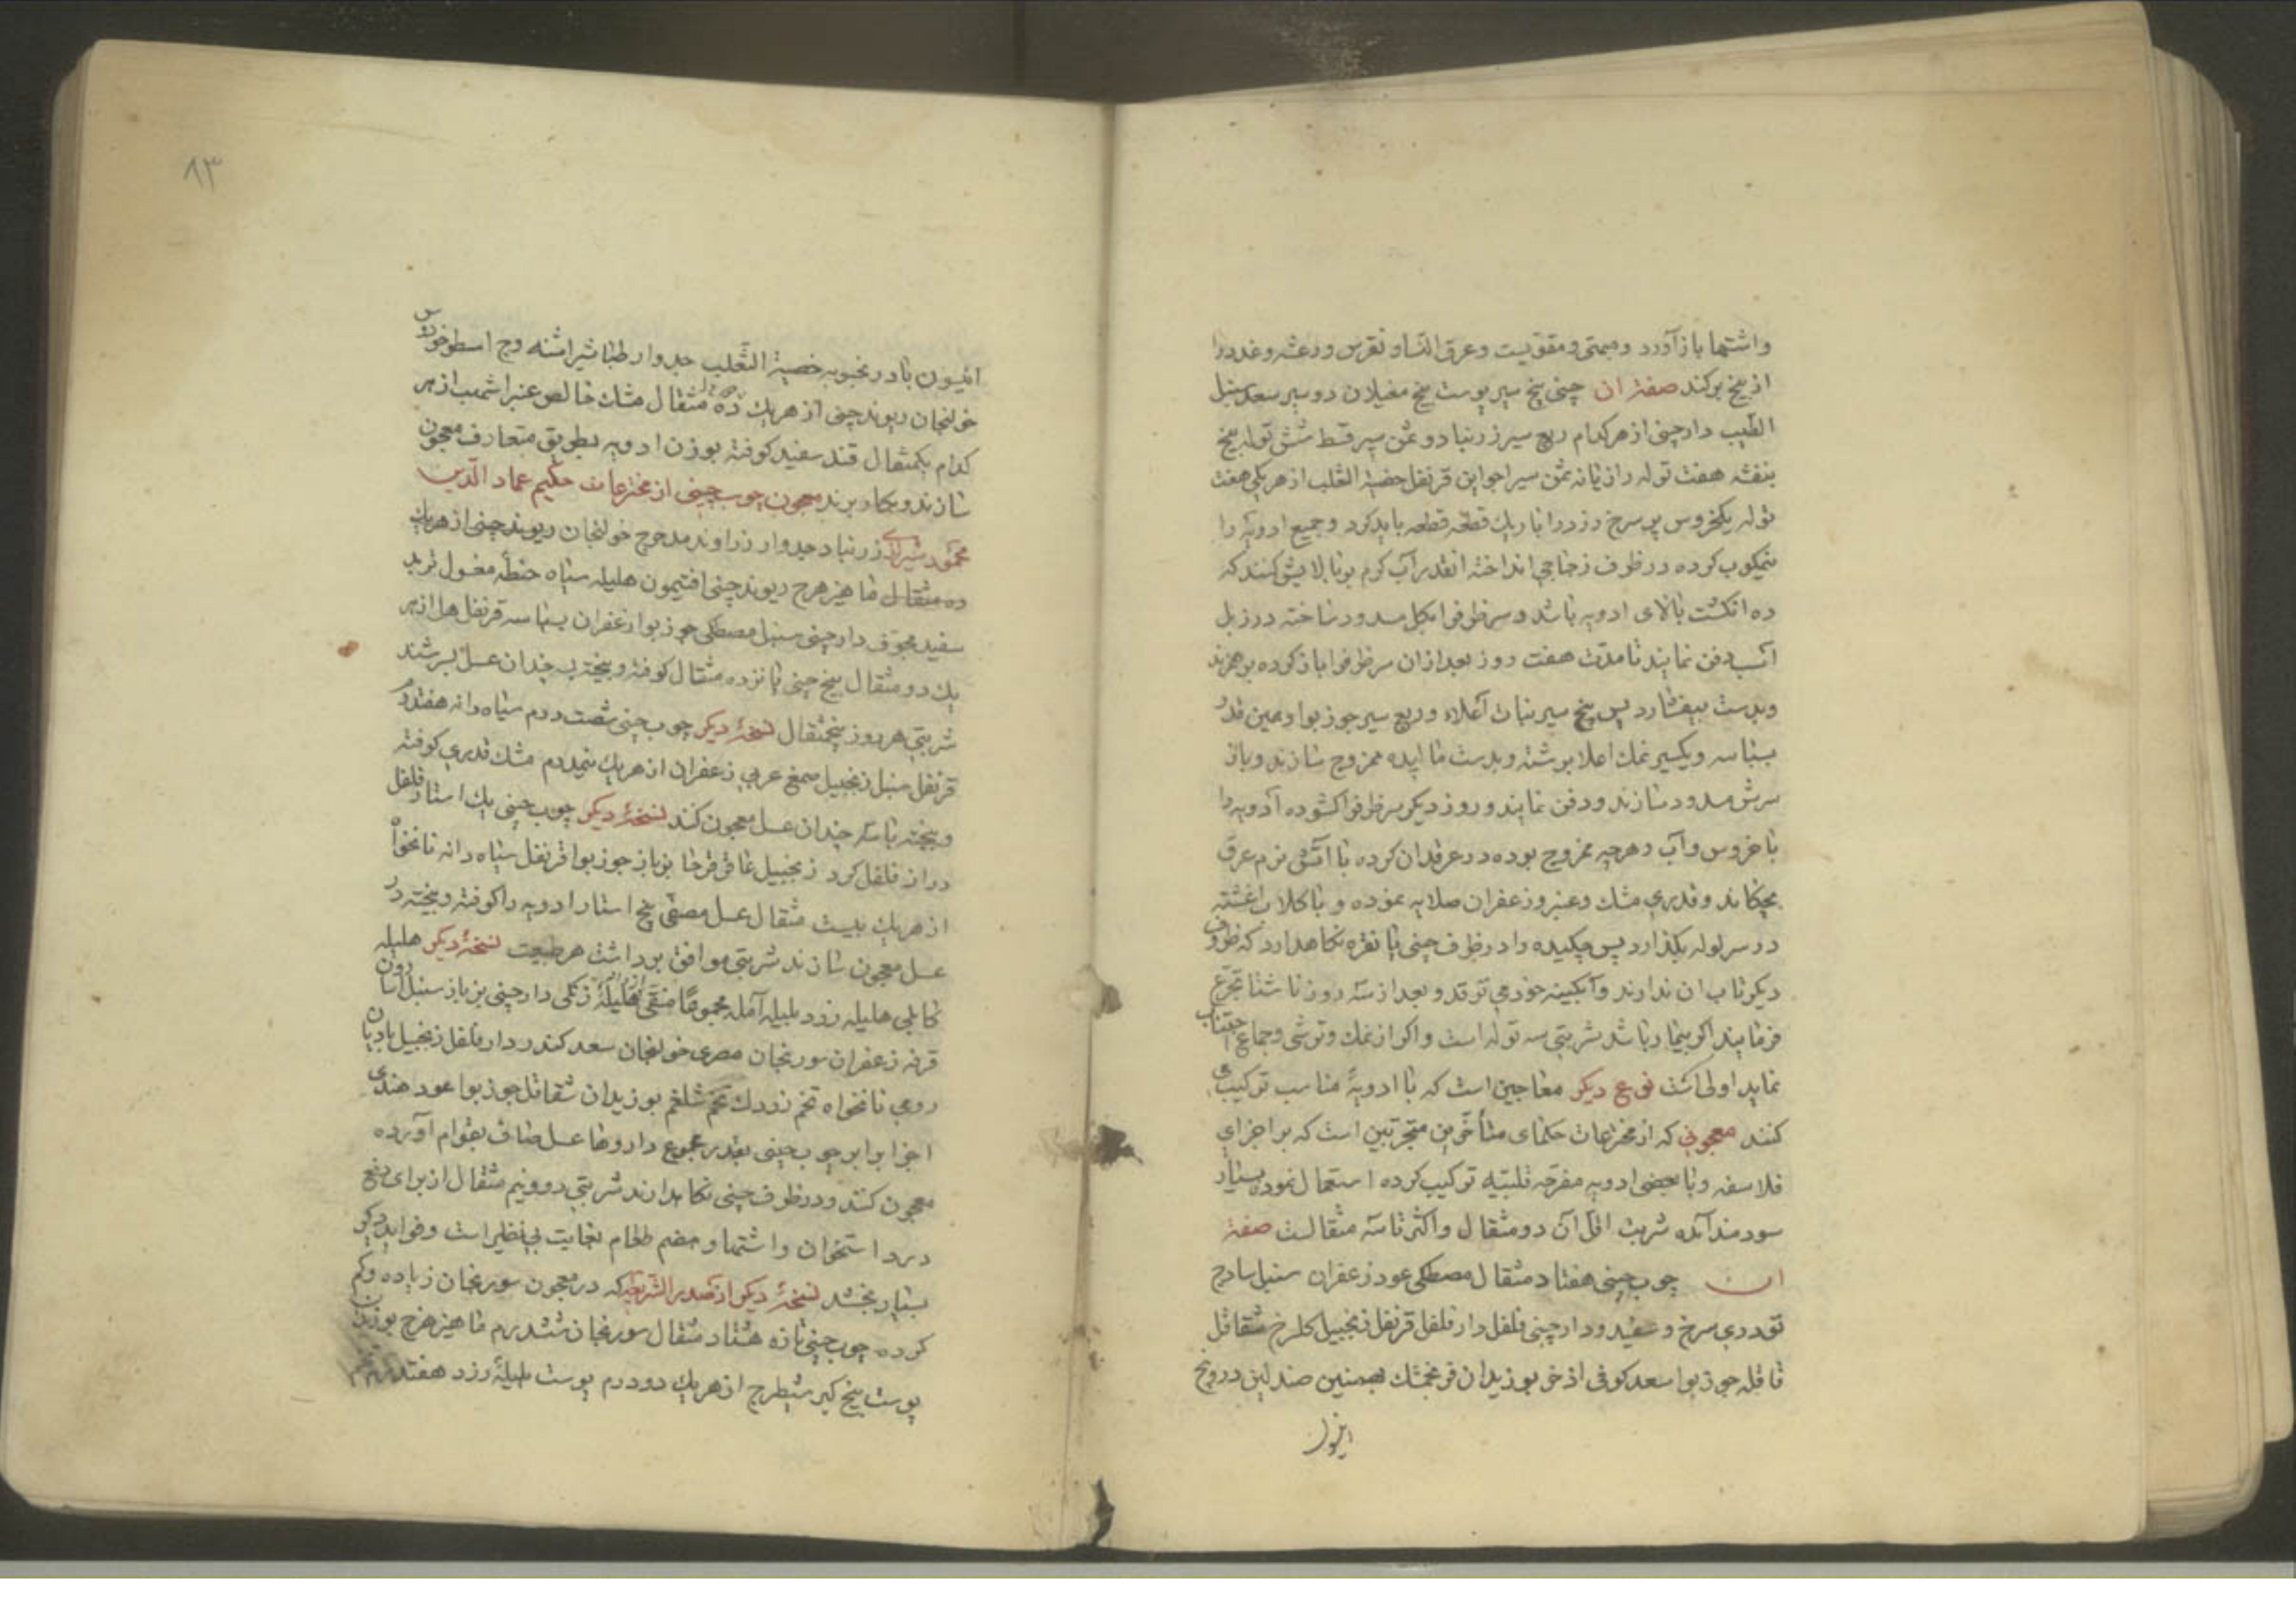 واشتها باز آورد ومبهی ومقویست وعرق النسا ونقرس ورعشه وغدد را
از بیخ برکند صفة ان چینی پنج سیر پوست بیخ مغیلان دو سیر سعد سنبل
الطیب دارچینی از هر کدام ربع سیر زرنباد دو ثمن سیر قسط شش توله بیخ
بنفشه هفت توله رازیانه ثمن سیر اجواین قرنفل خصیة الثعلب از هر یکی هفت
توله یکخروس پر سرخ وزدرا باریك قطعه قطعه باید کرد وجمیع ادویه را
نیمکوب کرده در ظرف زجاجی انداخته انقدر آب کرم بر بالایش کنند که
ده انکشت بالای ادویه باشد وسر ظرفرا بکل مسدود ساخته در زبل
اسب دفن نمایند تا مدت هفت روز بعد ازان سر ظرفرا باز کرده بر هم زند
وبدست بیفشارد پس پنج سیر نبات آعلاء وربع سیر جوزبوا وهمین قدر
بسباسه ویکسیر نمك اعلا برشته وبدست مالیده ممزوج سازند وباز
سرش مسدود سازند ودفن نمایند وروز دیکر سر ظرفرا کشوده آدویه را
با خروس وآب وهرچه ممزوج بوده در عرقدان کرده با آتش نرم عرق
بچکاند وقدری مشك وعنبر وزعفران صلایه نموده و با کلاب اغشته
در سر لوله بکذارد پس چکیده را در ظرف چینی یا نقره نکاهدارد که ظروف
دیکر تاب ان ندارند وآبکینه خود می ترقد وبعد از سه روز ناشتا تجرع
فرمایند اکر بیمار باشد شربتی سه توله است واکر از نمك وترشی وجماع اجتناب
نماید اولی است نوع دیکر معاجین است که با ادویهٔ مناسب ترکیب می
کنند معجونی که از مخترعات حکمای متأخرین متجربین است که بر اجزای
فلاسفه وبا بعضی ادویه مفرحه قلبیه ترکیب کرده استعمال نموده بسیار
سودمند آمده شربت اقل آن دو مثقال واکثر تا سه مثقالست صفة
ان چوب چینی هفتاد مثقال مصطکی عود زعفران سنبل سادج
تودری سرخ وسفید ودارچینی فلفل دارفلفل قرنفل زنجبیل کلسرخ شقاقل
قاقله جوزبوا سعد کوفی اذخر بوزیدان فرنجمشك بهمنین صندلین درونج
۸۳
افتیمون بادرنجبویه خصیة الثعلب جدوار طباشیر اشنه وج اسطوخودوس
خولنجان ریوند چینی از هر یك ده مثقال مشك خالص عنبر اشهب از هر
کدام یکمثقال قند سفید کوفته بوزن ادویه بطریق متعارف معجون
سازند وبکار برند معجون چوب چینی از مخترعات حکیم عماد الدین
محمود شیرازی زرنباد جدوار زراوند مدحرج خولنجان ریوند چینی از هر یك
ده مثقال ماهیزهرج ریوند چینی افتیمون هلیله سیاه حنطهٔ مغسول تربد
سفید مجوف دارچینی سنبل مصطکی جوزبوا زعفران بسباسه قرنفل هل از هر
یك دو مثقال بیخ چینی پانزده مثقال کوفته وبیخته بسه چندان عسل بسرشند
شربتی هر روز پنجمثقال نسخهٔ دیکر چوب چینی شصت درم سیاه دانه هفتدرم
قرنفل سنبل زنجبیل صمغ عربی زعفران از هر یك نیمدرم مشك قدری کوفته
وبیخته با سه چندان عسل معجون کنند نسخهٔ دیکر چوب چینی یك استار فلفل
دراز فلفل کرد زنجبیل عاقرقرحا بزباز جوزبوا قرنفل سیاه دانه نانخواه
از هر یك بیست مثقال عسل مصفی پنج استار ادویه را کوفته وبیخته در
عسل معجون سازند شربتی موافق برداشت هر طبیعت نسخهٔ دیکر هلیله
کابلی هلیله زرد بلیله آمله مجموعا منقی هلیلهٔ زنکی دارچینی بزباز سنبل اسارون
قرفه زعفران سورنجان مصری خولنجان سعد کندر دارفلفل زنجبیل بادیان
رومی نانخواه تخم زردك تخم شلغم بوزیدان شقاقل جوزبوا عود هندی
اجزا برابر چوب چینی بقدر مجموع داروها عسل صاف بقوام آورده
معجون کنند ودر ظرف چینی نکاهدارند شربتی دو ونیم مثقال از برای دفع
درد استخوان واشتها وهضم طعام بغایت بی نظیر است وفواید دیکر
بسیار بخشد نسخهٔ دیکر از صدر الشریعه که در معجون سورنجان زیاده وکم
کرده چوب چینی تازه هشتاد مثقال سورنجان ششدرم ماهیزهرج بوزیدان
پوست بیخ کبر شیطرج از هر یك دو درم پوست هلیلهٔ زرد هفتدرم